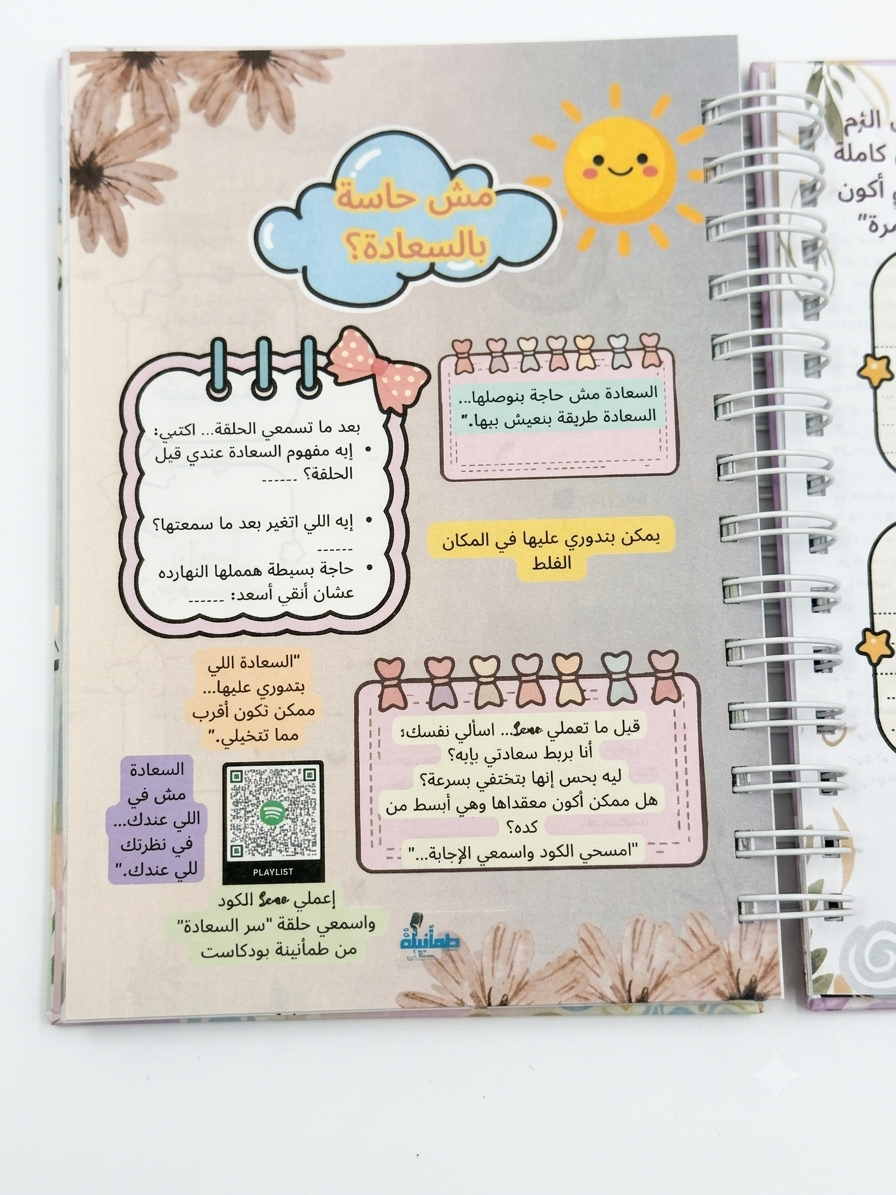 مش حاسة
بالسعادة؟
السعادة مش حاجة بنوصلها...
السعادة طريقة بنعيش بيها."
بعد ما تسمعي الحلقة... اكتبي:
• إيه مفهوم السعادة عندي قبل
الحلقة؟ ------
• إيه اللي اتغير بعد ما سمعتها؟
------
• حاجة بسيطة هعملها النهارده
عشان أبقي أسعد: ------
يمكن بتدوري عليها في المكان
الغلط
"السعادة اللي
بتدوري عليها...
ممكن تكون أقرب
مما تتخيلي."
قبل ما تعملي Scan... اسألي نفسك:
أنا بربط سعادتي بإيه؟
ليه بحس إنها بتختفي بسرعة؟
هل ممكن أكون معقداها وهي أبسط من
كده؟
"امسحي الكود واسمعي الإجابة..."
السعادة
مش في
اللي عندك...
في نظرتك
للي عندك."
PLAYLIST
إعملي Scan الكود
واسمعي حلقة "سر السعادة"
من طمأنينة بودكاست
طمأنينة
كاملة
أكون